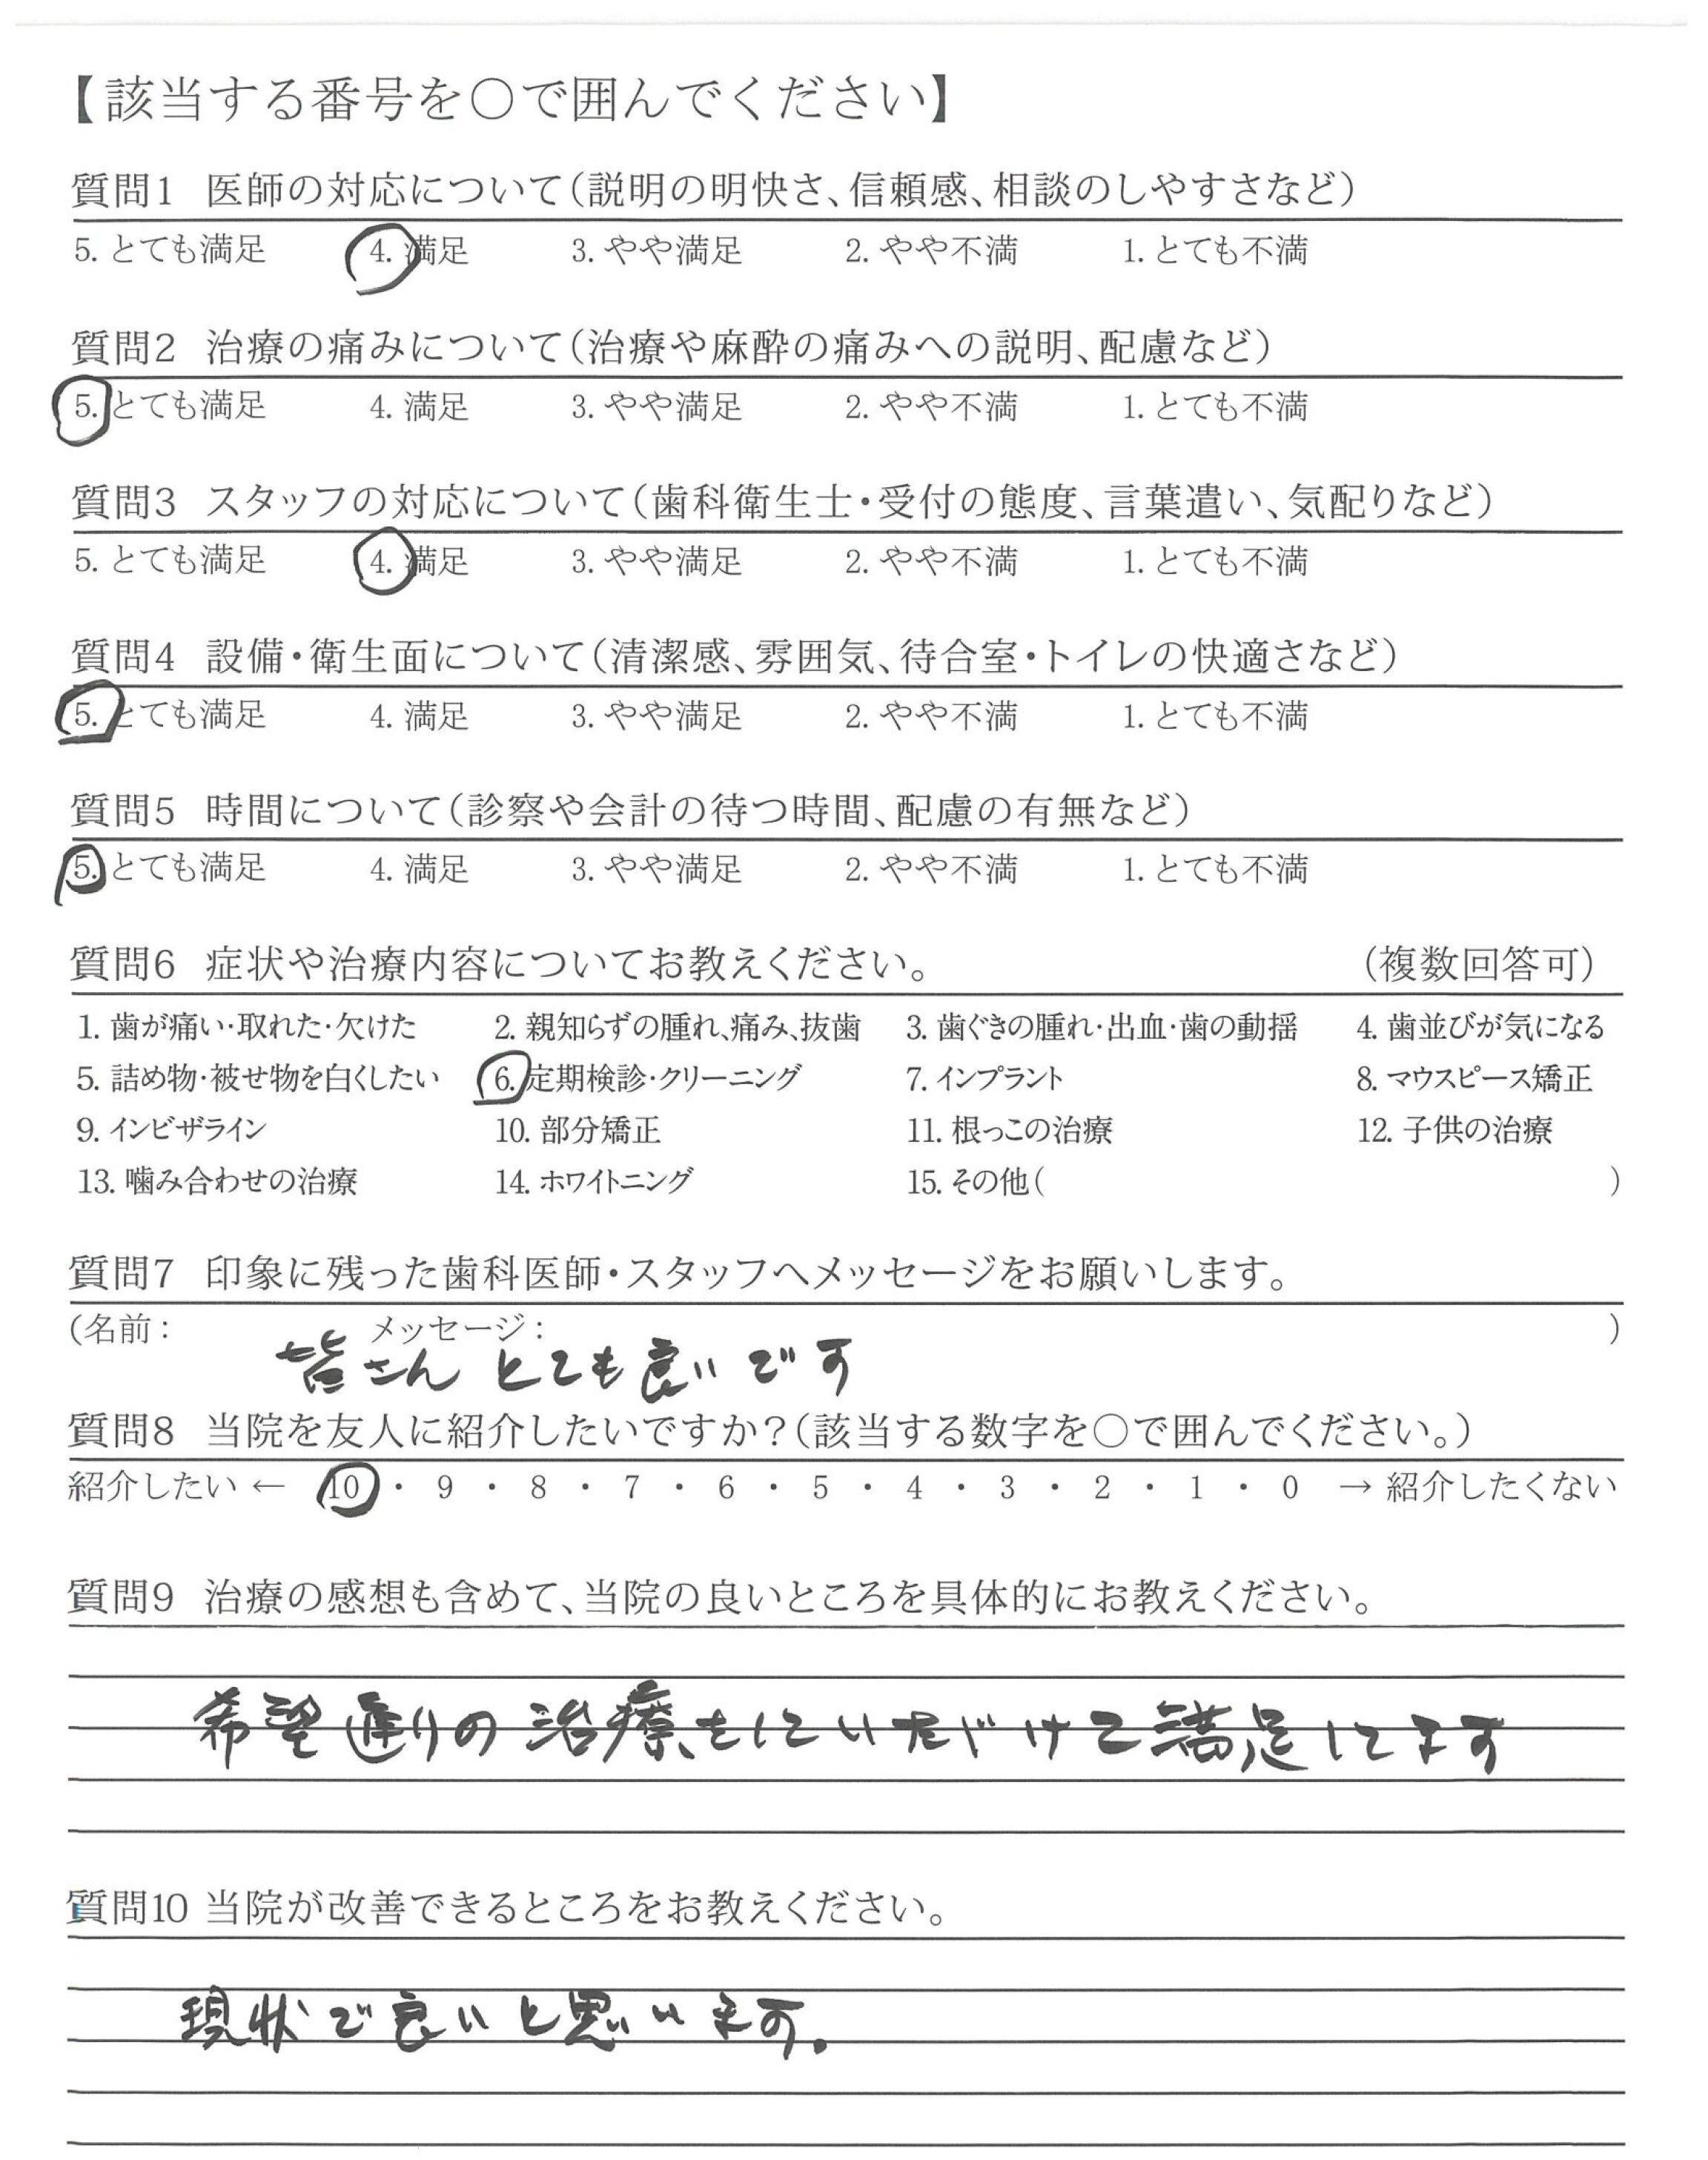 【該当する番号を〇で囲んでください】
質問1 医師の対応について(説明の明快さ、信頼感、相談のしやすさなど)
5. とても満足 4. 満足 3. やや満足 2. やや不満 1. とても不満
質問2 治療の痛みについて(治療や麻酔の痛みへの説明、配慮など)
5. とても満足 4. 満足 3. やや満足 2. やや不満 1. とても不満
質問3 スタッフの対応について(歯科衛生士・受付の態度、言葉遣い、気配りなど)
5. とても満足 4. 満足 3. やや満足 2. やや不満 1. とても不満
質問4 設備・衛生面について(清潔感、雰囲気、待合室・トイレの快適さなど)
5. とても満足 4. 満足 3. やや満足 2. やや不満 1. とても不満
質問5 時間について(診察や会計の待つ時間、配慮の有無など)
5. とても満足 4. 満足 3. やや満足 2. やや不満 1. とても不満
質問6 症状や治療内容についてお教えください。 (複数回答可)
1. 歯が痛い・取れた・欠けた 2. 親知らずの腫れ、痛み、抜歯 3. 歯ぐきの腫れ・出血・歯の動揺 4. 歯並びが気になる
5. 詰め物・被せ物を白くしたい 6. 定期検診・クリーニング 7. インプラント 8. マウスピース矯正
9. インビザライン 10. 部分矯正 11. 根っこの治療 12. 子供の治療
13. 噛み合わせの治療 14. ホワイトニング 15. その他( )
質問7 印象に残った歯科医師・スタッフへメッセージをお願いします。
(名前: メッセージ: )
皆さん とても良いです
質問8 当院を友人に紹介したいですか?(該当する数字を〇で囲んでください。)
紹介したい ← 10 ・ 9 ・ 8 ・ 7 ・ 6 ・ 5 ・ 4 ・ 3 ・ 2 ・ 1 ・ 0 → 紹介したくない
質問9 治療の感想も含めて、当院の良いところを具体的にお教えください。
希望通りの治療をしていただけて満足してます
質問10 当院が改善できるところをお教えください。
現状で良いと思います。